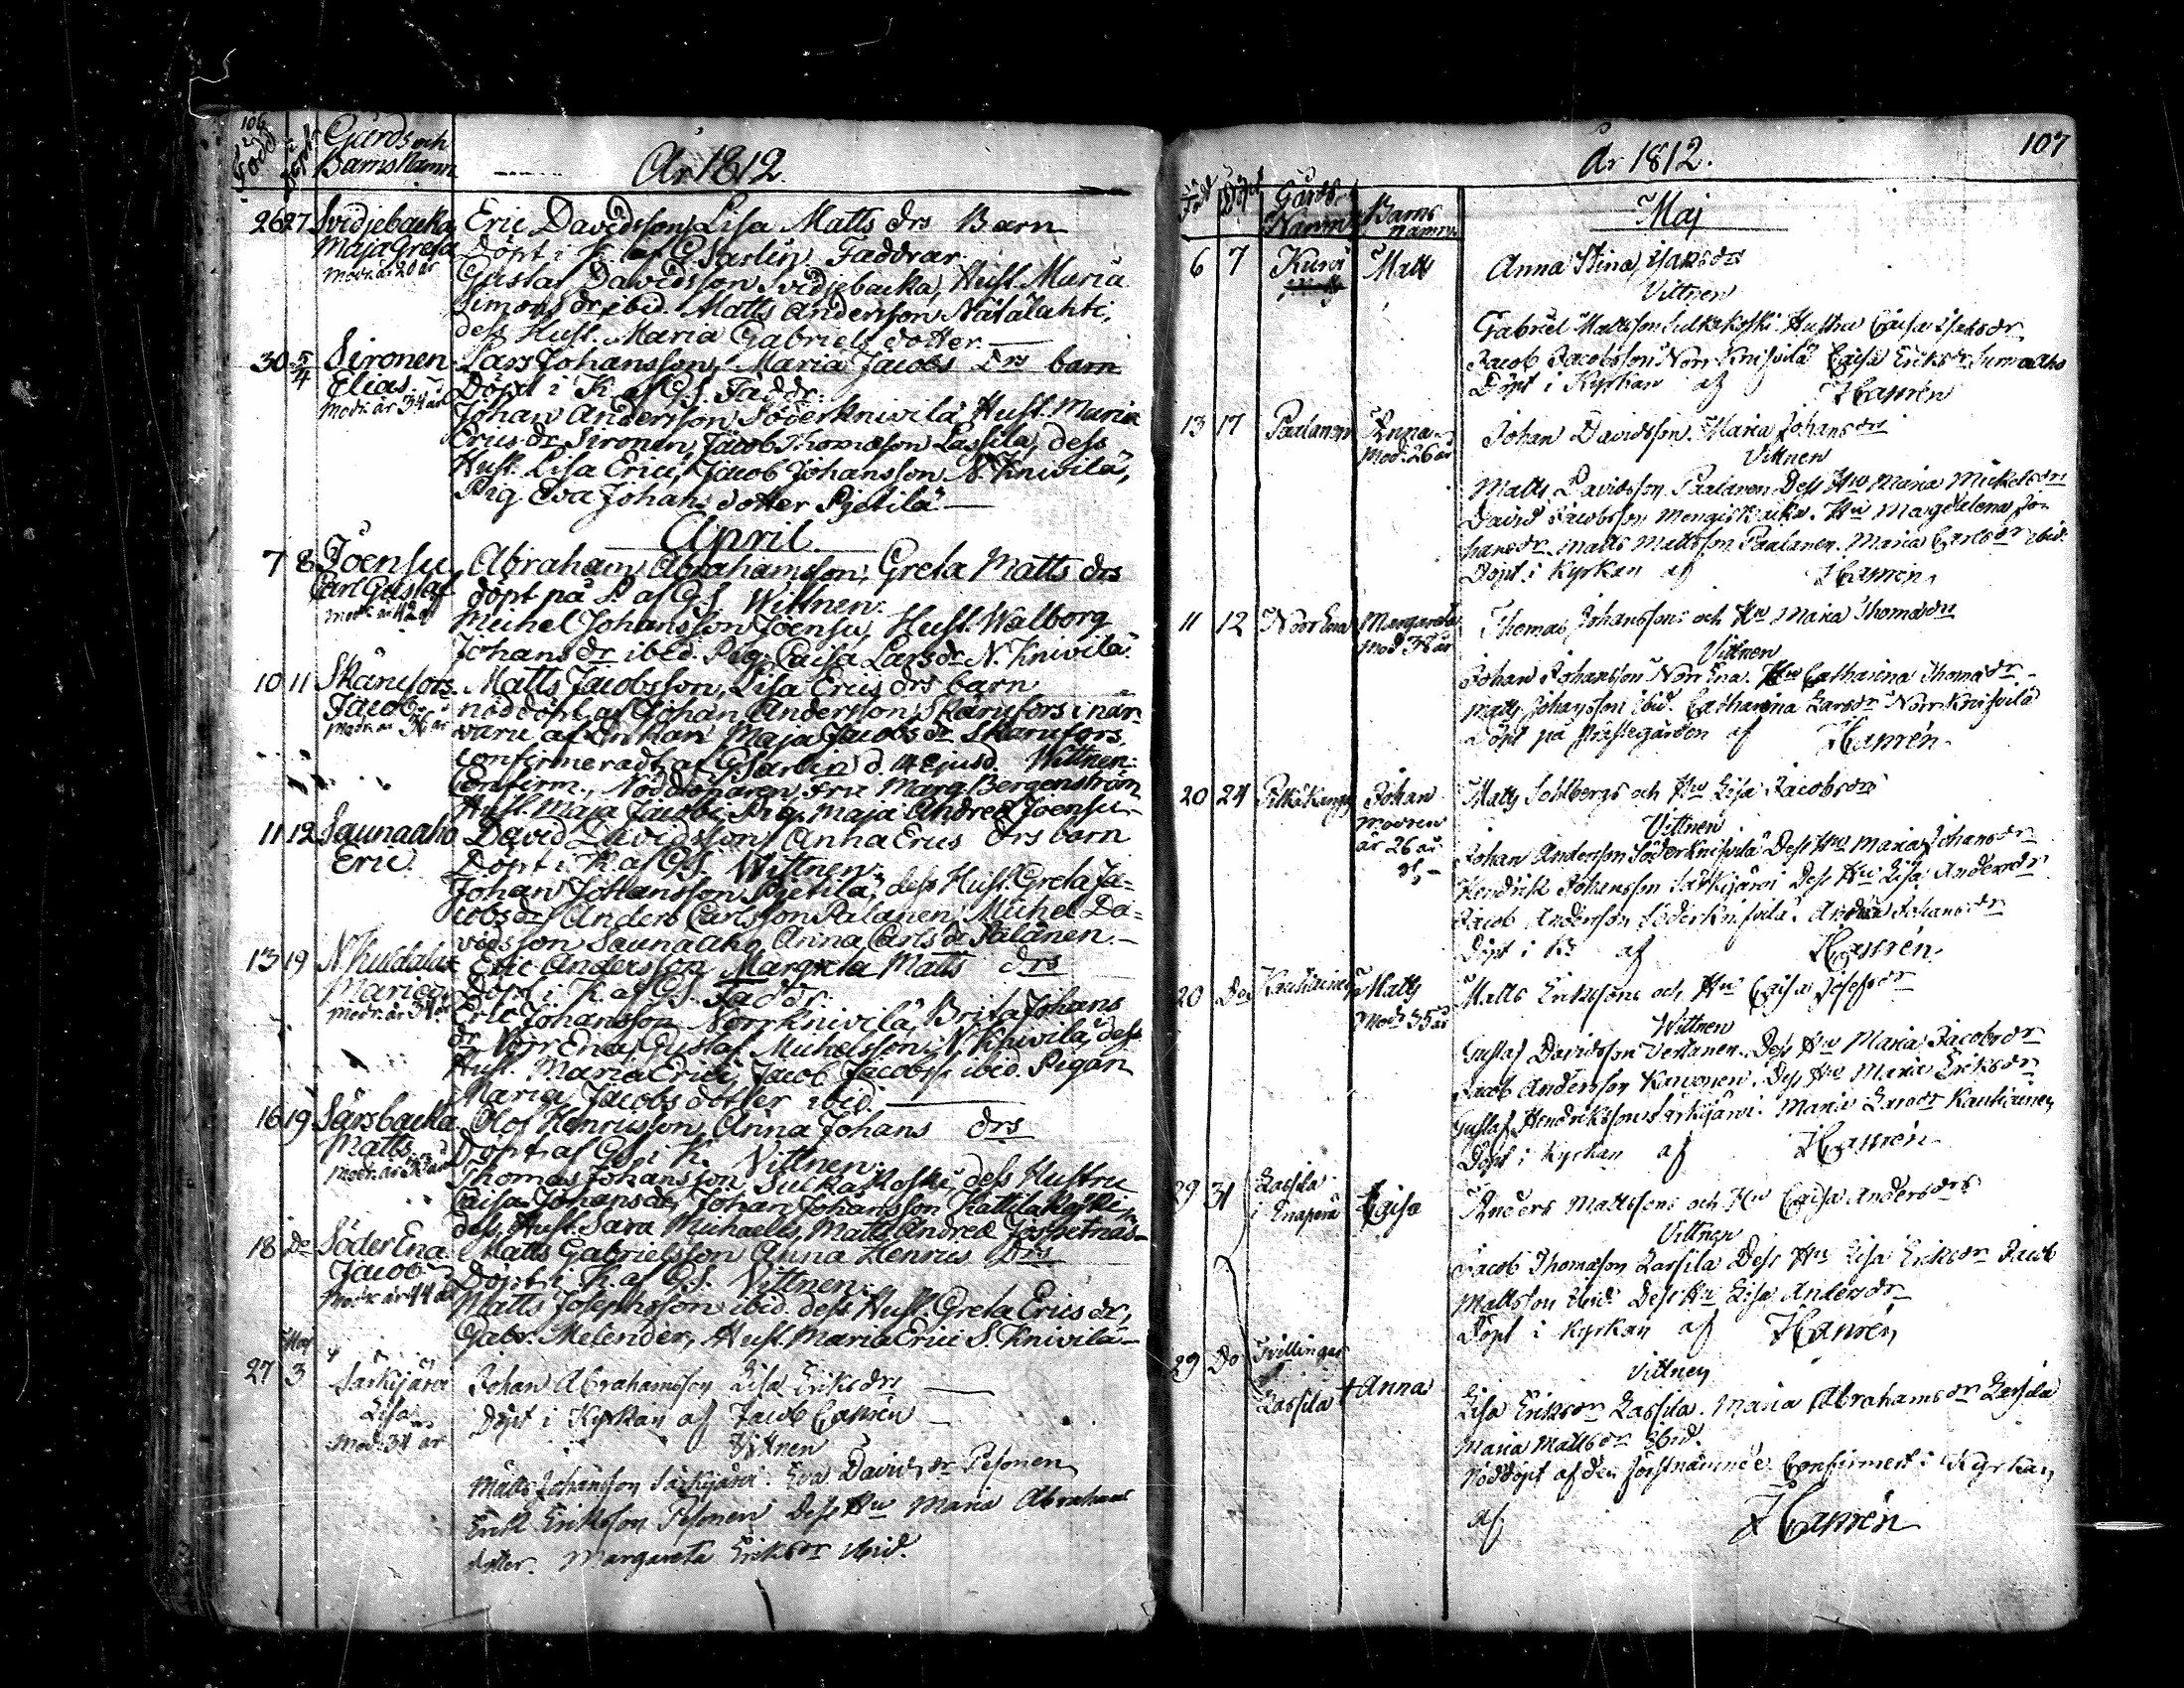 106
Född
Gårds och
Barns Namn
År 1812.
26 27 Svidjebacka Eric Davidsson, Lisa Matts drs Barn
Maja Greta Döpt i K. af G. Sarlin. Faddrar
Modr. är 20 år Gustaf Davidsson Svidjebacka, Hust. Maria
Simons dr ibid. Matts Andersson Nätälahti,
dess Hust. Maria Gabriels dotter.
30 5/4 Sironen Lars Johansson, Maria Jacobs Drs barn
Elias Döpt i K. af G.S. Faddr.
Modr. är 34 år Johan Andersson Söderknivilä Hust. Maria
Erics dr Sironen, Jacob Thomasson Lassila, dess
Hust. Lisa Erici, Jacob Johansson N. Knivilä,
Pig. Eva Johans dotter Pjetilä
April
7 8 Joensu Abraham Abrahamsson, Greta Matts drs
Carl Gustaf döpt på P. af G.S. Wittnen:
Modr. är 42 år Michel Johansson Joensu, Hust. Walborg
Johans dr ibid. Pig. Caisa Lars dr N. Knivilä.
10 11 Skärufors Matts Jacobsson, Lisa Erics drs barn
Jacob nöddöpt af Johan Andersson Skärufors i när-
Modr. är 36 år varu af Enkan Maja Jacobs dr Skärufors,
confirmeradt af G Sarlin d. 14 ejusd. Wittnen:
Confirm., Nöddöparen, Fru Marg. Bergenström
Hust. Maja Jacobi, Pig. Maja Andreæ Joensu
11 12 Saunaaho David Davidsson, Anna Erics drs barn
Eric. Döpt i K. af G.S. Wittnen:
Johan Johansson Pjetilä, dess Hust. Greta Ja-
cobs dr, Anders Carlsson Palanen, Michel Da-
vidsson Saunaaho, Anna Carls dr Palanen.
13 19 Eric Andersson Margreta Matts drs
Maria Döpt i K. af G.S. Faddr.
Modr. är 34 år Eric Johansson Norrknivilä, Brita Johans
dr Norr Ena, Gustaf Michelsson N. Knivilä, dess
Hust. Maria Erici, Jacob Jacobss. ibid. Pigan
Maria Jacobs dotter ibid.
16 19 Särsbacka Olof Henricsson Anna Johans drs
Matts Döpt af GS. i K. Vittnen:
Thomas Johansson Sulkakoski, dess Hustru
Caisa Johans dr, Johan Johansson Kattilakoski,
dess Hust. Sara Michaelis, Matts Andreæ
18 Do Söder Ena Matts Gabrielsson Anna Henrics Drs
Jacob Döpt i K. af G.S. Vittnen:
Modr. är 44 år Matts Josephsson ibid. dess Hust. Greta Erics dr,
Gabr. Melender, Hust. Maria Erici S. Knivilä
Maj
27 3 Särkijärvi Johan Abrahamsson Lisa Eriksdrs
Lisa Döpt i Kyrkan af Jacob Canrén
Mod. 34 år Vittnen
Matts Johansson Särkijärvi. Eva Davids dr Pesonen
Erik Eriksson Pesonen Dess Hu Maria Abrahams
dotter. Margareta Eriks dr ibid.
107
År 1812.
Född Döpt Gårds Namn Barns namn
Maj
6 7 Kurvi Matts Anna Stina Isaksdrs
Vittnen
Gabriel Mattsson Sulkakoski. Hustru Caisa Isaksdr
Jacob Jacobsson Norr Knifvilä Caisa Eriksdr
Döpt i Kyrkan af Hanrén
13 17 Paalanen Anna Johan Davidsson. Maria Johansdrs
Mod. 26 år Vittnen
Matts Davidsson Paalanen Dess Hu Maria Mickelsdr
David Jacobsson Hu Magdalena Jo-
hansdr. Matts Mattsson Paalanen. Maria Carlsdr ibid.
Döpt i Kyrkan af Hanrén
11 12 Norr Ena Margareta Thomas Johanssons och Hu Maria Thomædrs
Mod 38 år Vittnen
Johan Johansson Norr Ena. Hu Catharina Thomædr
Matts Johansson ibid. Catharina Larsdr Norr Knifvilä
Döpt på Prästegården af Hanrén
20 24 Pitkäkangas Johan Matts Sohlbergs och Hu Lisa Jacobsdrs
Modren Vittnen
är 26 år Johan Andersson Söderknifvilä Dess Hu Maria Johansdr
Hendrik Johansson Särkijärvi Dess Hu Lisa Andersdr
Jacob Andersson Söderknifvilä. Johansdr
Döpt i K. af Hanrén
20 Do Kautiainen Matts Matts Erikssons och Hu Caisa Josefsdr
Mod. 35 år Wittnen
Gustaf Davidsson Vertanen. Dess Hu Maria Jacobsdr
Jacob Andersson Karvonen. Dess Hu Maria Eriksdr
Gustaf Hendriksson Särkijärvi. Maria Larsdr Kautiainen
Döpt i Kyrkan af Hanrén
29 31 Lassila i Enaperä Caisa Anders Mattssons och Hu Caisa Andersdrs
Vittnen
Jacob Thomasson Lassila Dess Hu Lisa Eriksdr Jacob
Mattsson ibid. Dess Hu Lisa Andersdr
Döpt i Kyrkan af Hanrén
29 Do Tvillingar Vittnen
Lassila + Anna Lisa Eriksdr Lassila. Maria Abrahamsdr Lassila
Maria Mattsdr Ibid.
Nöddöpt af den förstnämnde. Confirmert i Kyrkan
af Hanrén